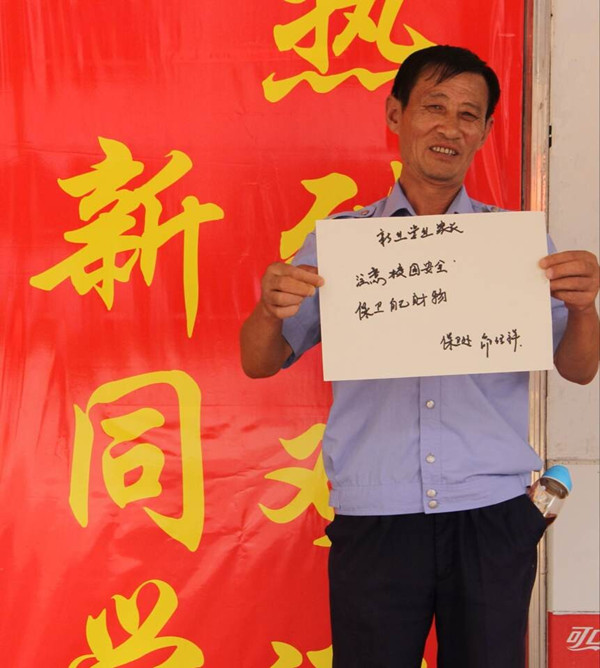 热
新同学
新生学生家长
注意校园安全
保卫自己财物
保卫处
可口